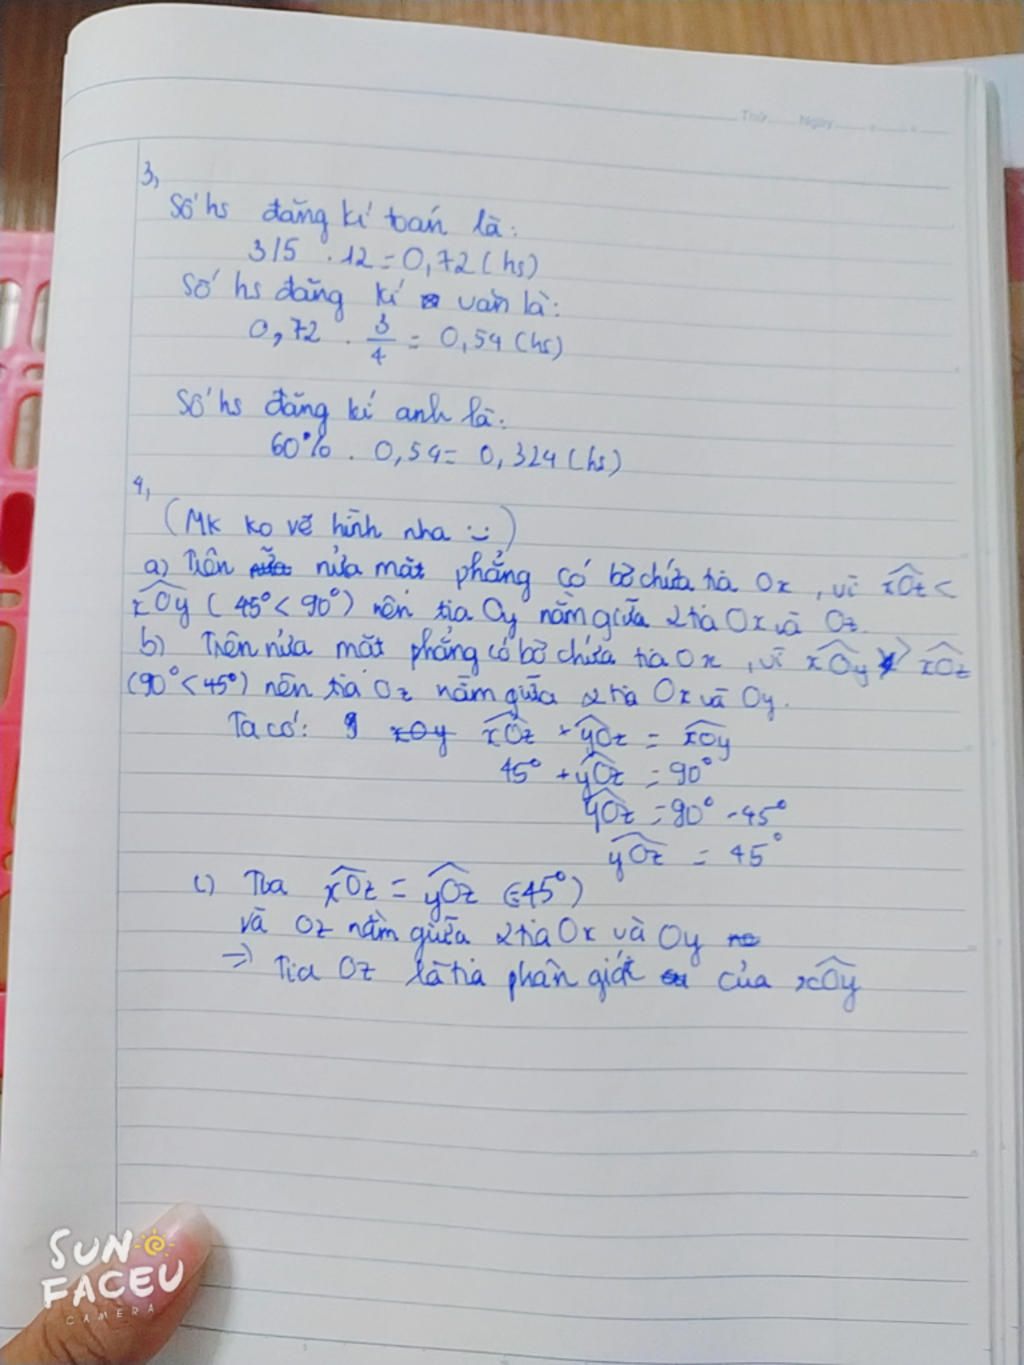 Thứ Ngày
3,
Số hs đăng kí toán là:
315 . 12 = 0,72 (hs)
Số hs đăng kí văn là:
0,72 . 3/4 = 0,54 (hs)
Số hs đăng kí anh là:
60% . 0,54 = 0,324 (hs)
4,
(Mk ko vẽ hình nha :-))
a) Trên nửa mặt phẳng có bờ chứa tia Ox, vì xOz <
xOy (45° < 90°) nên tia Oy nằm giữa 2 tia Ox và Oz.
b) Trên nửa mặt phẳng có bờ chứa tia Ox, vì xOy > xOz
(90° < 45°) nên tia Oz nằm giữa 2 tia Ox và Oy.
Ta có: xOz + yOz = xOy
45° + yOz = 90°
yOz = 90° - 45°
yOz = 45°
c) xOz = yOz (=45°)
và Oz nằm giữa 2 tia Ox và Oy
=> Tia Oz là tia phân giác của xOy
SUN
FACEU
CAMERA